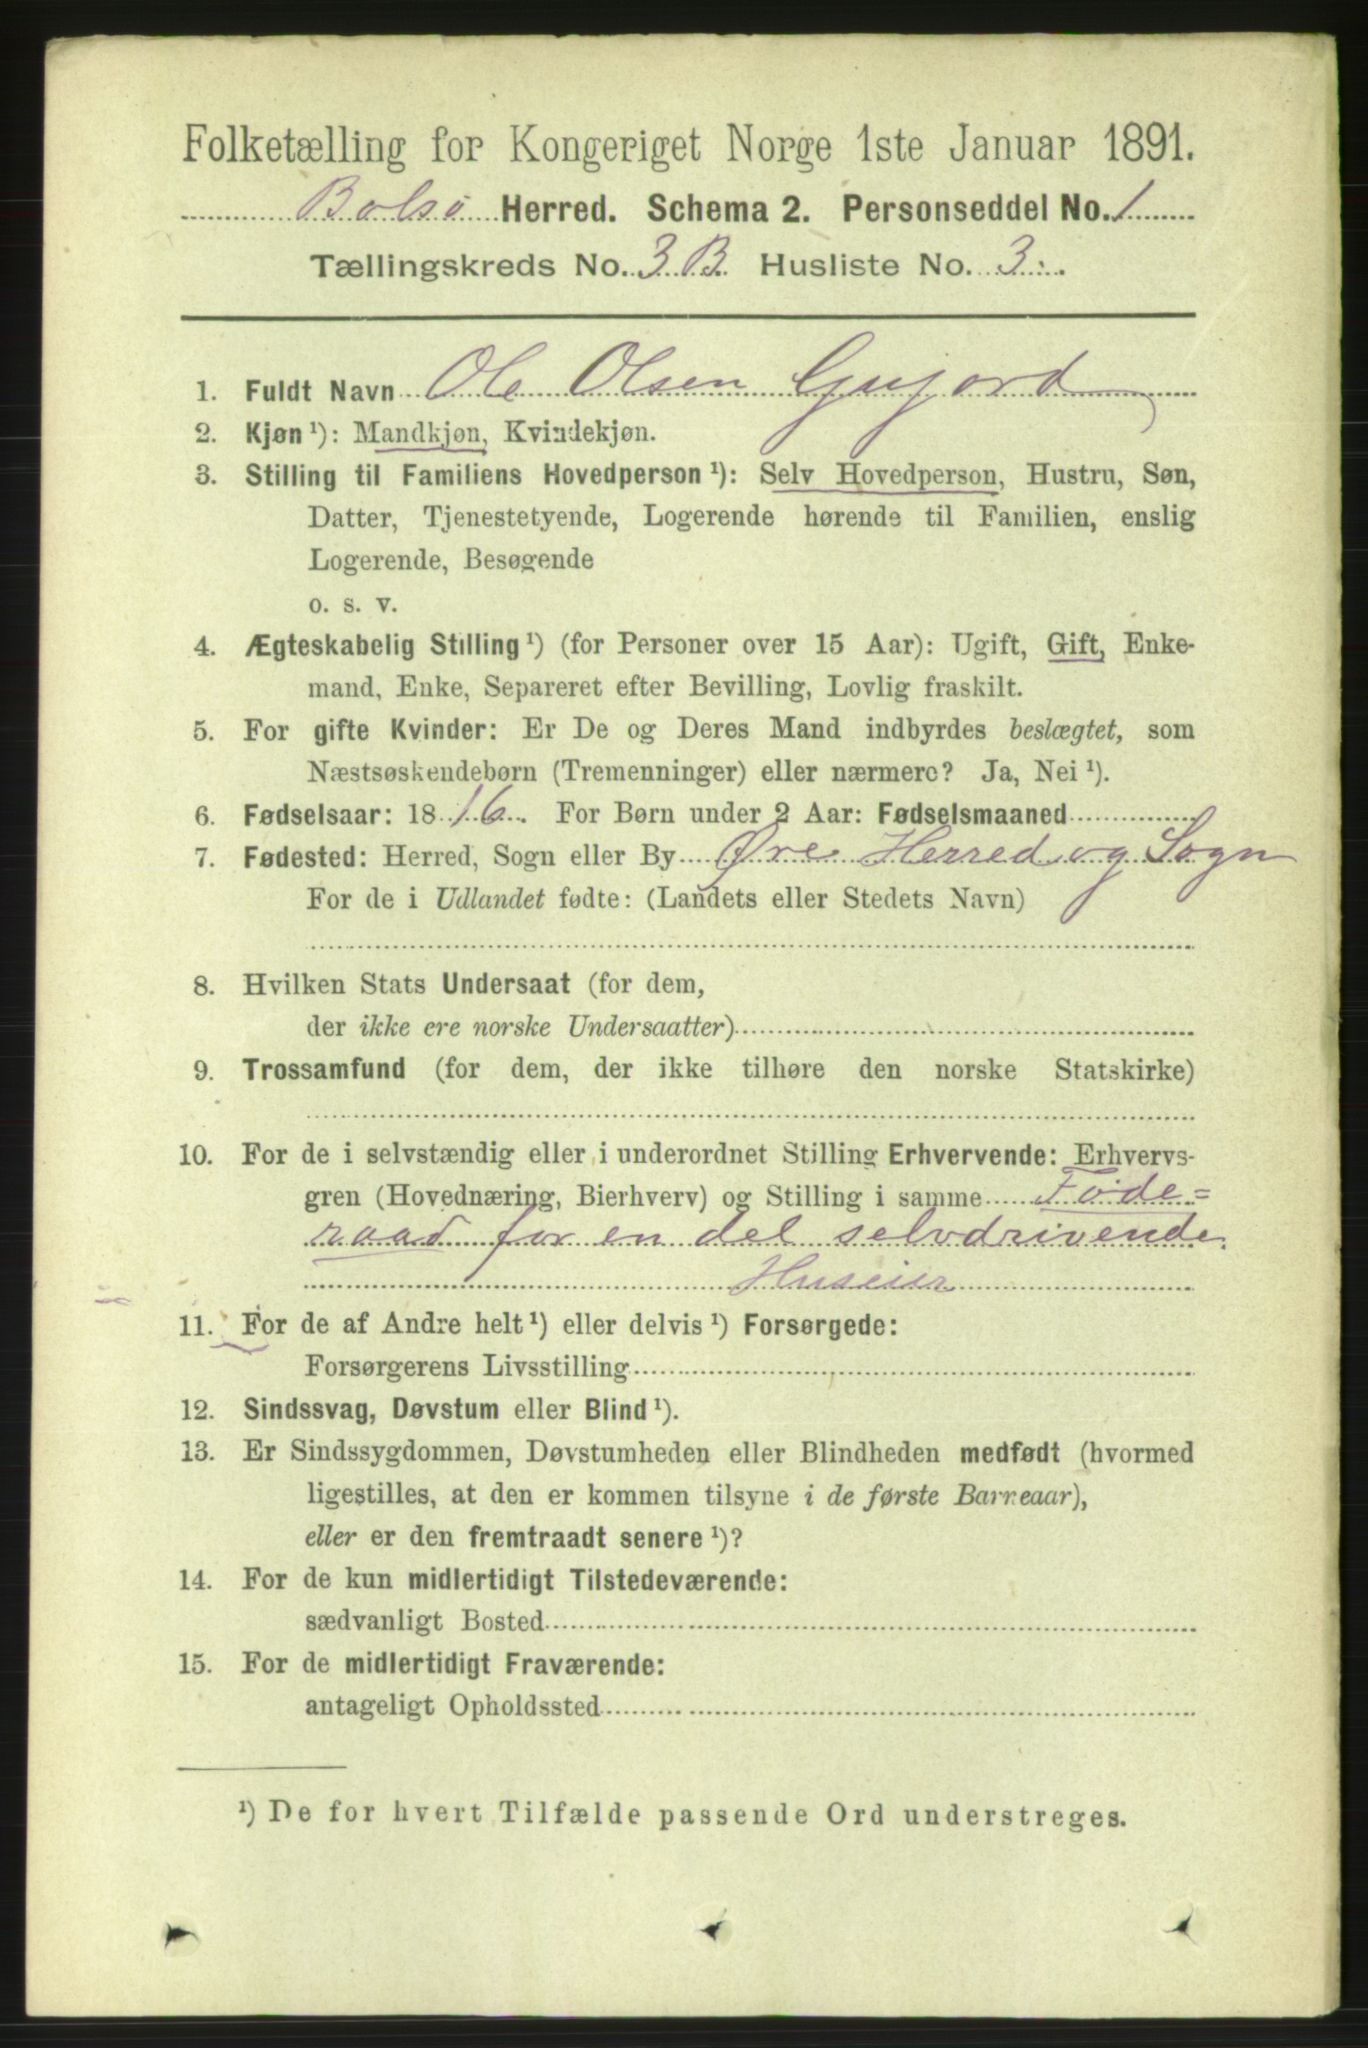 Folketælling for Kongeriget Norge 1ste Januar 1891.
Bolsø Herred. Schema 2. Personseddel No. 1
Tællingskreds No. 3 B Husliste No. 3.
1. Fuldt Navn Ole Olsen Gujord
2. Kjøn ¹): Mandkjøn, Kvindekjøn.
3. Stilling til Familiens Hovedperson ¹): Selv Hovedperson, Hustru, Søn,
Datter, Tjenestetyende, Logerende hørende til Familien, enslig
Logerende, Besøgende
o. s. v.
4. Ægteskabelig Stilling ¹) (for Personer over 15 Aar): Ugift, Gift, Enke-
mand, Enke, Separeret efter Bevilling, Lovlig fraskilt.
5. For gifte Kvinder: Er De og Deres Mand indbyrdes beslægtet, som
Næstsøskendebørn (Tremenninger) eller nærmere? Ja, Nei ¹).
6. Fødselsaar: 1816. For Børn under 2 Aar: Fødselsmaaned
7. Fødested: Herred, Sogn eller By Øre Herred og Sogn
For de i Udlandet fødte: (Landets eller Stedets Navn)
8. Hvilken Stats Undersaat (for dem,
der ikke ere norske Undersaatter)
9. Trossamfund (for dem, der ikke tilhøre den norske Statskirke)
10. For de i selvstændig eller i underordnet Stilling Erhvervende: Erhvervs-
gren (Hovednæring, Bierhverv) og Stilling i samme Føde=
raad for en del selvdrivende
Huseier
11. For de af Andre helt ¹) eller delvis ¹) Forsørgede:
Forsørgerens Livsstilling
12. Sindssvag, Døvstum eller Blind ¹).
13. Er Sindssygdommen, Døvstumheden eller Blindheden medfødt (hvormed
ligestilles, at den er kommen tilsyne i de første Barneaar),
eller er den fremtraadt senere ¹)?
14. For de kun midlertidigt Tilstedeværende:
sædvanligt Bosted
15. For de midlertidigt Fraværende:
antageligt Opholdssted
¹) De for hvert Tilfælde passende Ord understreges.